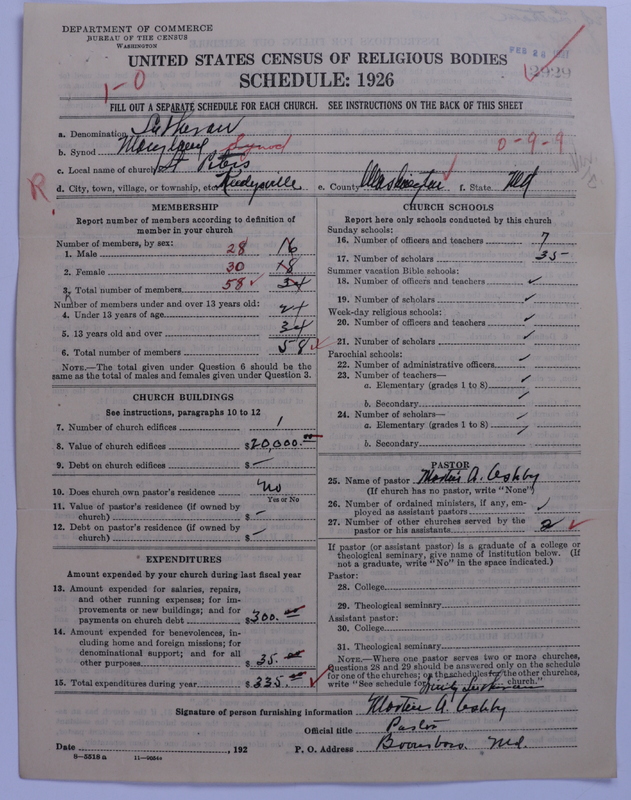 DEPARTMENT OF COMMERCE
BUREAU OF THE CENSUS
WASHINGTON
FEB 1927
UNITED STATES CENSUS OF RELIGIOUS BODIES
SCHEDULE: 1926
1-0
FILL OUT A SEPARATE SCHEDULE FOR EACH CHURCH. SEE INSTRUCTIONS ON THE BACK OF THIS SHEET
a. Denomination Lutheran
b. Synod Maryland Synod 0-9-9
c. Local name of church St Peters
R. d. City, town, village, or township, etc. Keedysville e. County Washington f. State Md
MEMBERSHIP
Report number of members according to definition of
member in your church
Number of members, by sex:
1. Male 28 16
2. Female 30 18
3. Total number of members 58 34
Number of members under and over 13 years old:
4. Under 13 years of age 24
5. 13 years old and over 34
6. Total number of members 58
NOTE.—The total given under Question 6 should be
same as the total of males and females given under Question 3.
CHURCH BUILDINGS
See instructions, paragraphs 10 to 12
7. Number of church edifices 1
8. Value of church edifices $20,000.00
9. Debt on church edifices $ —
10. Does church own pastor's residence No
Yes or No
11. Value of pastor's residence (if owned by
church) $ —
12. Debt on pastor's residence (if owned by
church) $ —
EXPENDITURES
Amount expended by your church during last fiscal year
13. Amount expended for salaries, repairs,
and other running expenses; for im-
provements or new buildings; and for
payments on church debt $300.00
14. Amount expended for benevolences, in-
cluding home and foreign missions; for
denominational support; and for all
other purposes $35.00
15. Total expenditures during year $335.00
CHURCH SCHOOLS
Report here only schools conducted by this church
Sunday schools:
16. Number of officers and teachers 7
17. Number of scholars 35
Summer vacation Bible schools:
18. Number of officers and teachers
19. Number of scholars
Week-day religious schools:
20. Number of officers and teachers
21. Number of scholars
Parochial schools:
22. Number of administrative officers
23. Number of teachers—
a. Elementary (grades 1 to 8)
b. Secondary
24. Number of scholars—
a. Elementary (grades 1 to 8)
b. Secondary
PASTOR
25. Name of pastor A. Ashby
(If church has no pastor, write "None")
26. Number of ordained ministers, if any, em-
ployed as assistant pastors
27. Number of other churches served by the
pastor or his assistants 2
If pastor (or assistant pastor) is a graduate of a college or
theological seminary, give name of institution below. (If
not a graduate, write "No" in the space indicated.)
Pastor:
28. College
29. Theological seminary
Assistant pastor:
30. College
31. Theological seminary
NOTE.—Where one pastor serves two or more churches,
Questions 28 and 29 should be answered only on the schedule
for one of the churches; on the schedules for the other churches,
write "See schedule for Trinity Lutheran church."
Signature of person furnishing information A. Ashby
Official title Pastor
Date , 192 P. O. Address Boonsboro, Md.
8-5518 a 11-9054a